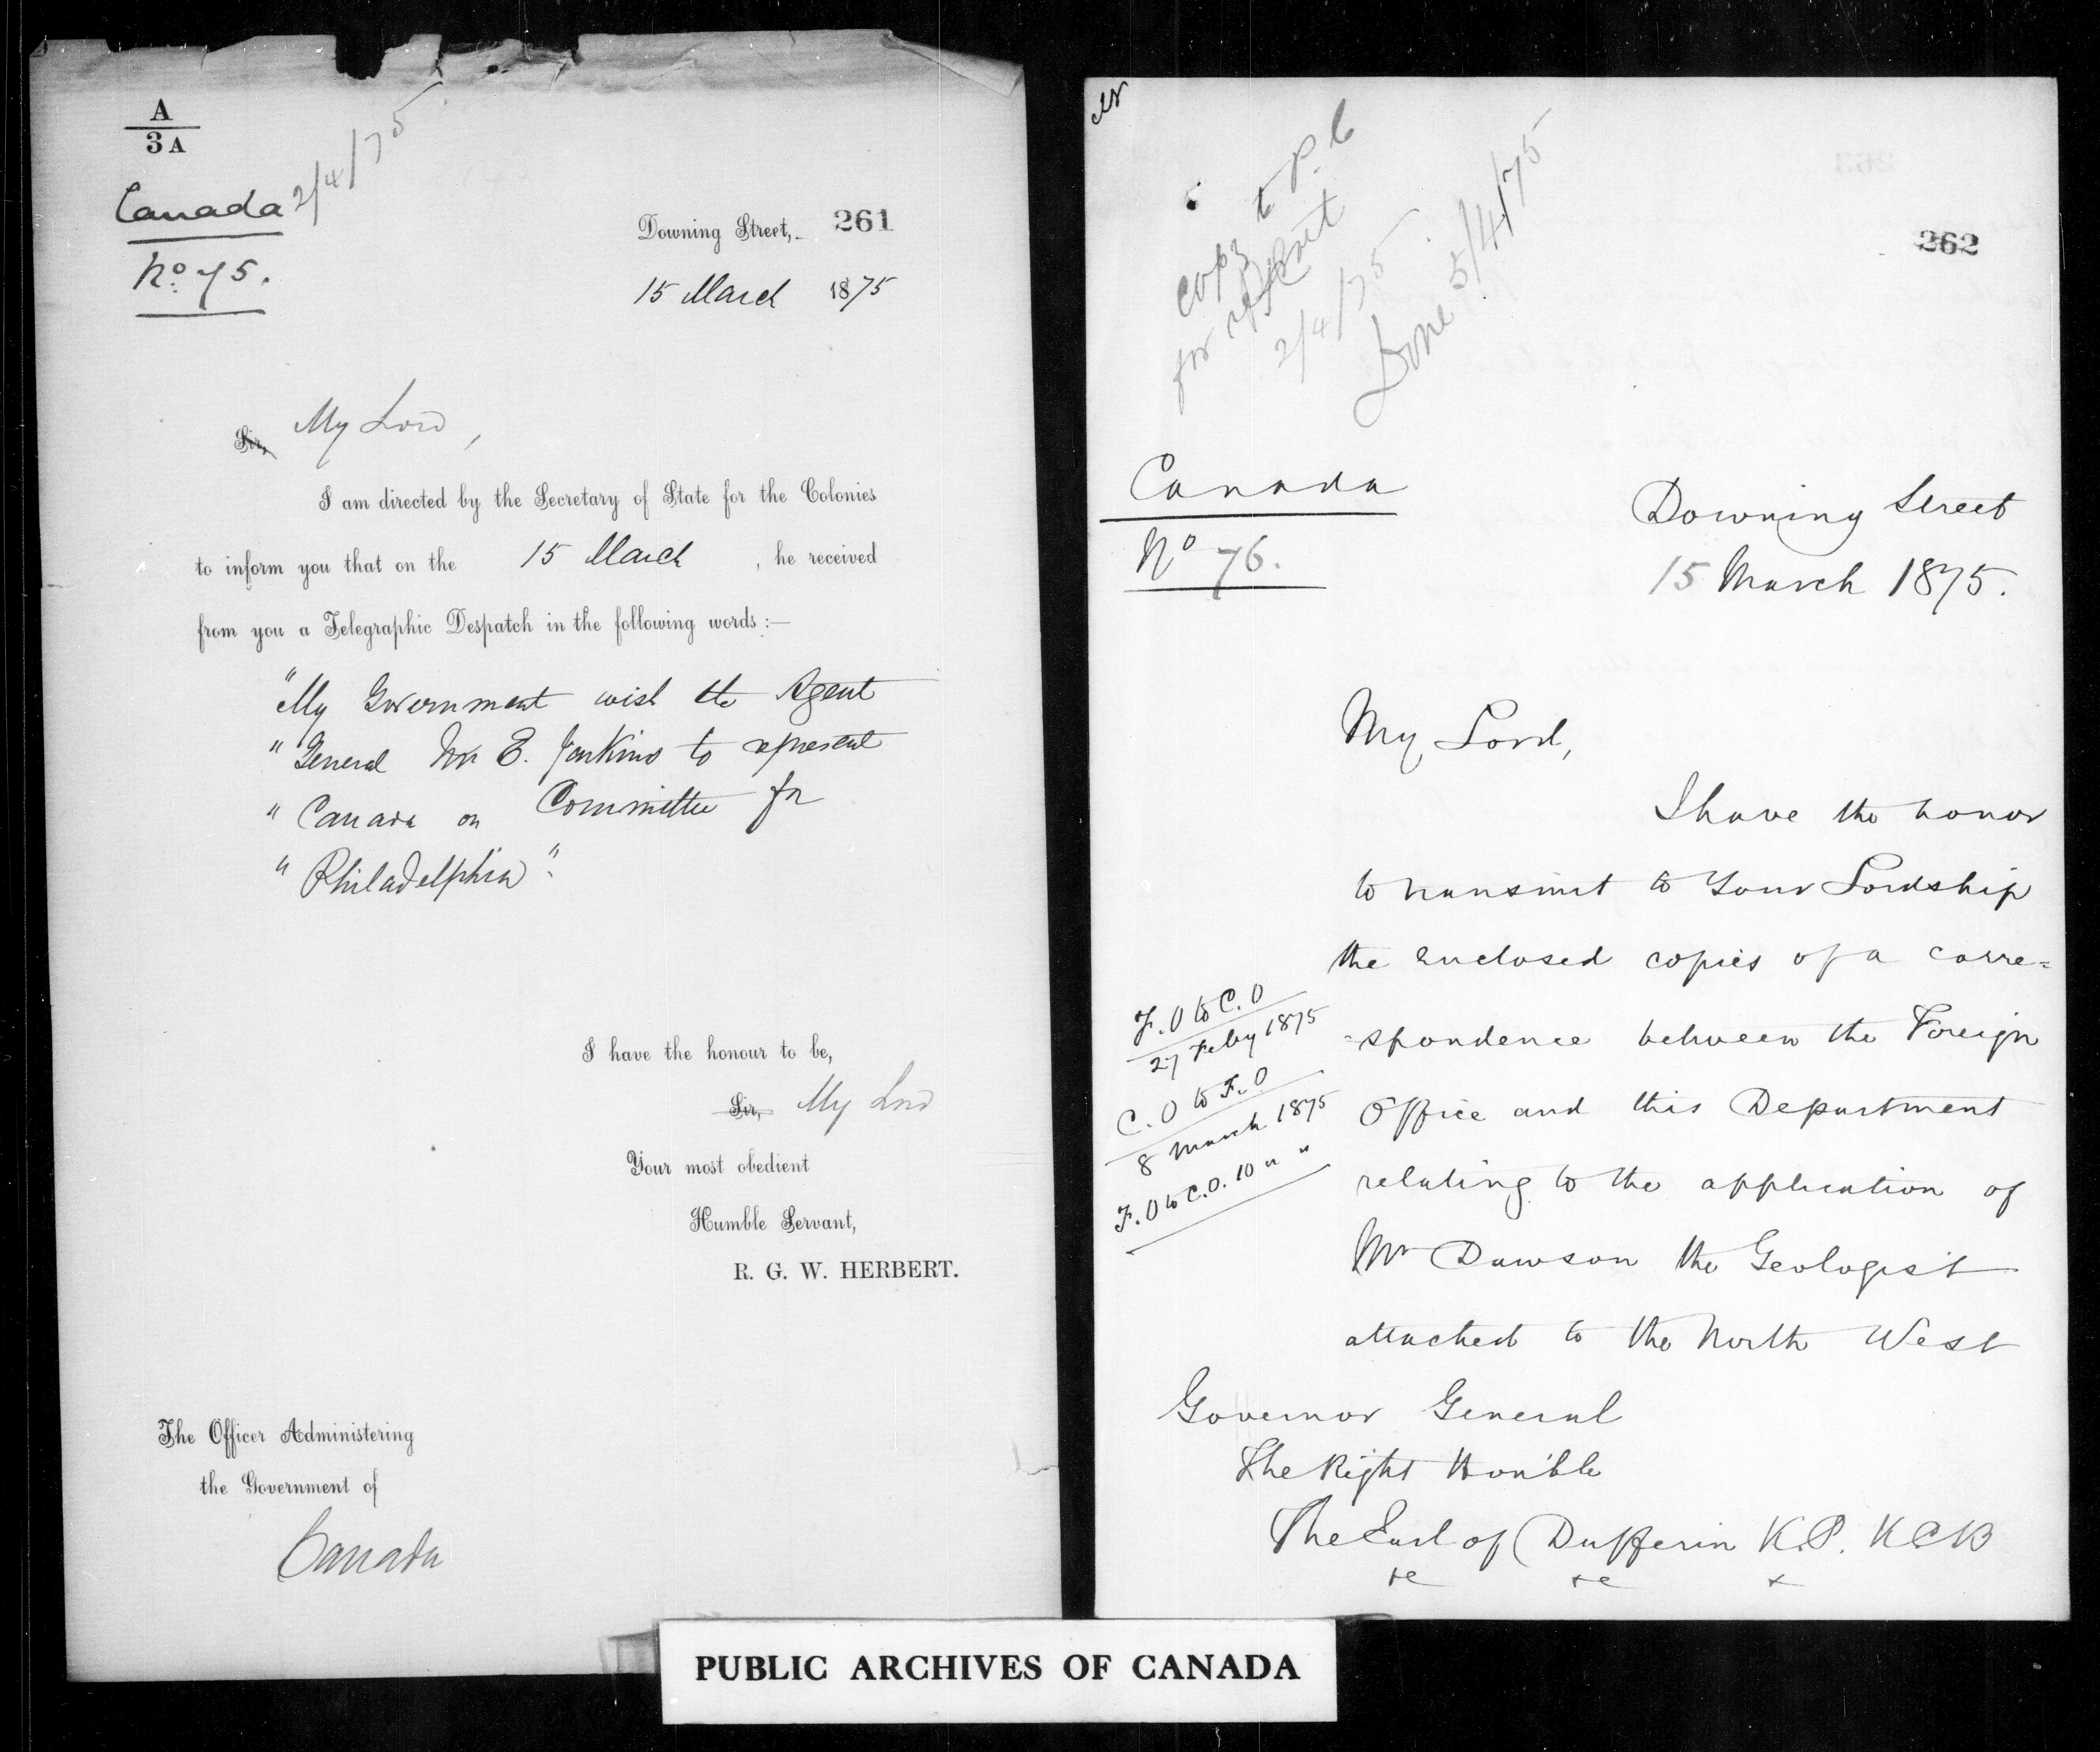 A
3A
Canada 2/4/75
No. 75.
Downing Street, 261
15 March 1875
Sir, My Lord,
I am directed by the Secretary of State for the Colonies
to inform you that on the 15 March, he received
from you a Telegraphic Despatch in the following words:—
"My Government wish the Agent
" General Mr E. Jenkins to represent
" Canada on Committee for
" Philadelphia".
I have the honour to be,
Sir, My Lord
Your most obedient
Humble Servant,
R. G. W. HERBERT.
The Officer Administering
the Government of
Canada
copy to P.C
for report
2/4/75
Done 5/4/75
262
Canada
No 76.
Downing Street
15 March 1875.
My Lord,
I have the honor
to transmit to Your Lordship
the enclosed copies of a corre=
=spondence between the Foreign
Office and this Department
relating to the application of
Mr Dawson the Geologist
attached to the North West
F.O to C.O
27 Feby 1875
C.O to F.O
8 March 1875
F.O to C.O. 10 " "
Governor General
The Right Hon'ble
The Earl of Dufferin K.P. KCB
&c &c &
PUBLIC ARCHIVES OF CANADA